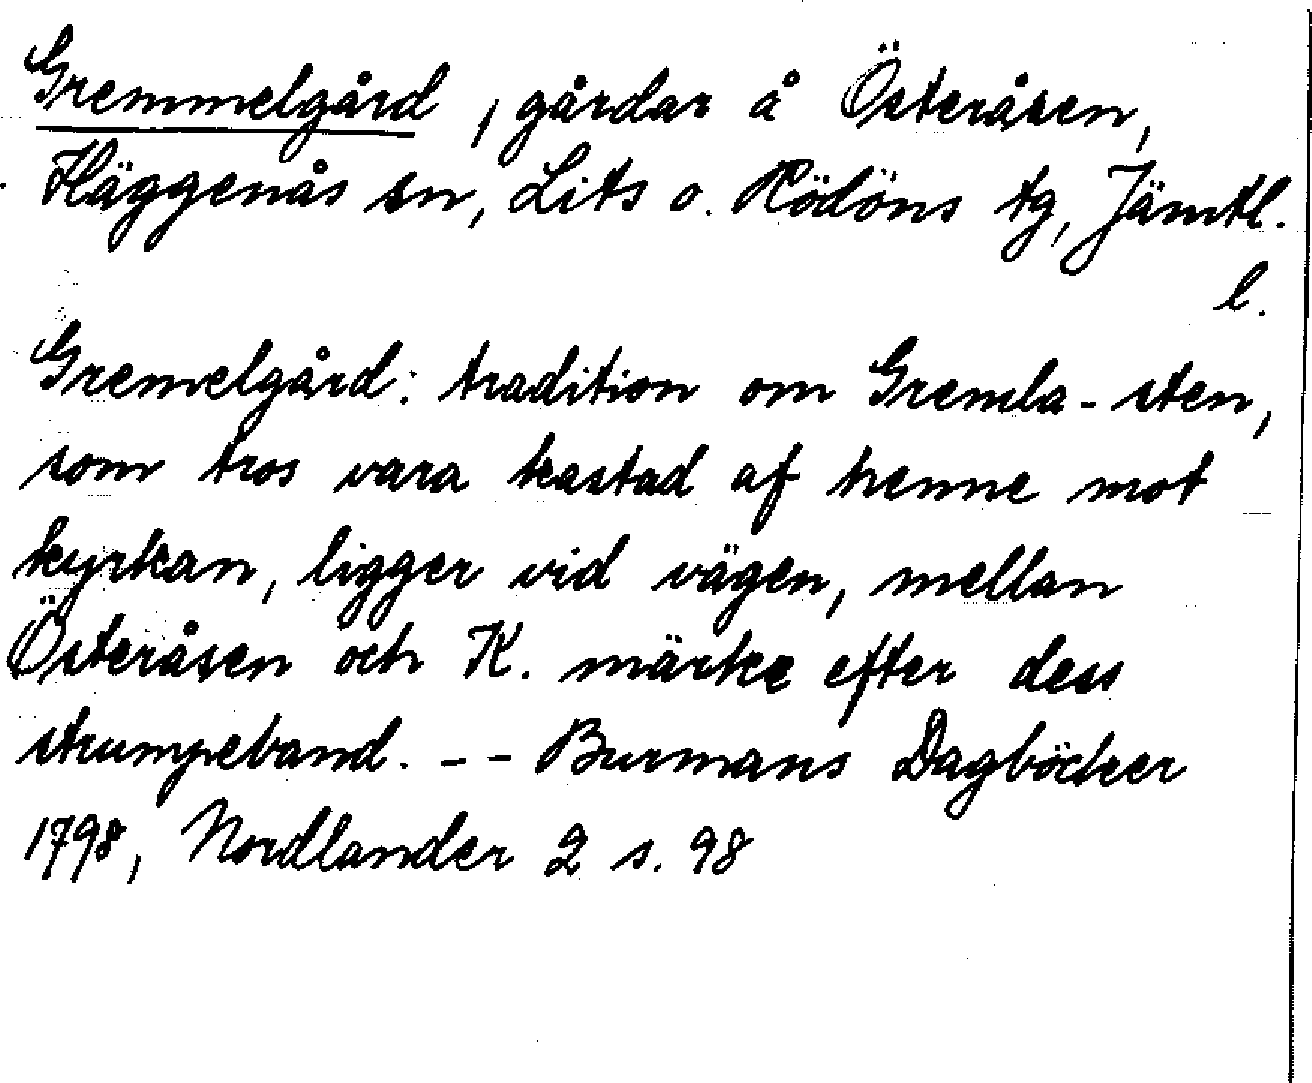 Gremmelgård, gårdar å Österåsen,
Häggenås sn, Lits o. Rödöns tg, Jämtl.
l.
Gremelgård: tradition om Gremla-sten,
som tros vara kastad af henne mot
kyrkan, ligger vid vägen, mellan
Österåsen och K. märke efter dess
strumpeband. -- Burmans Dagböcker
1798, Nordlander 2 s. 98